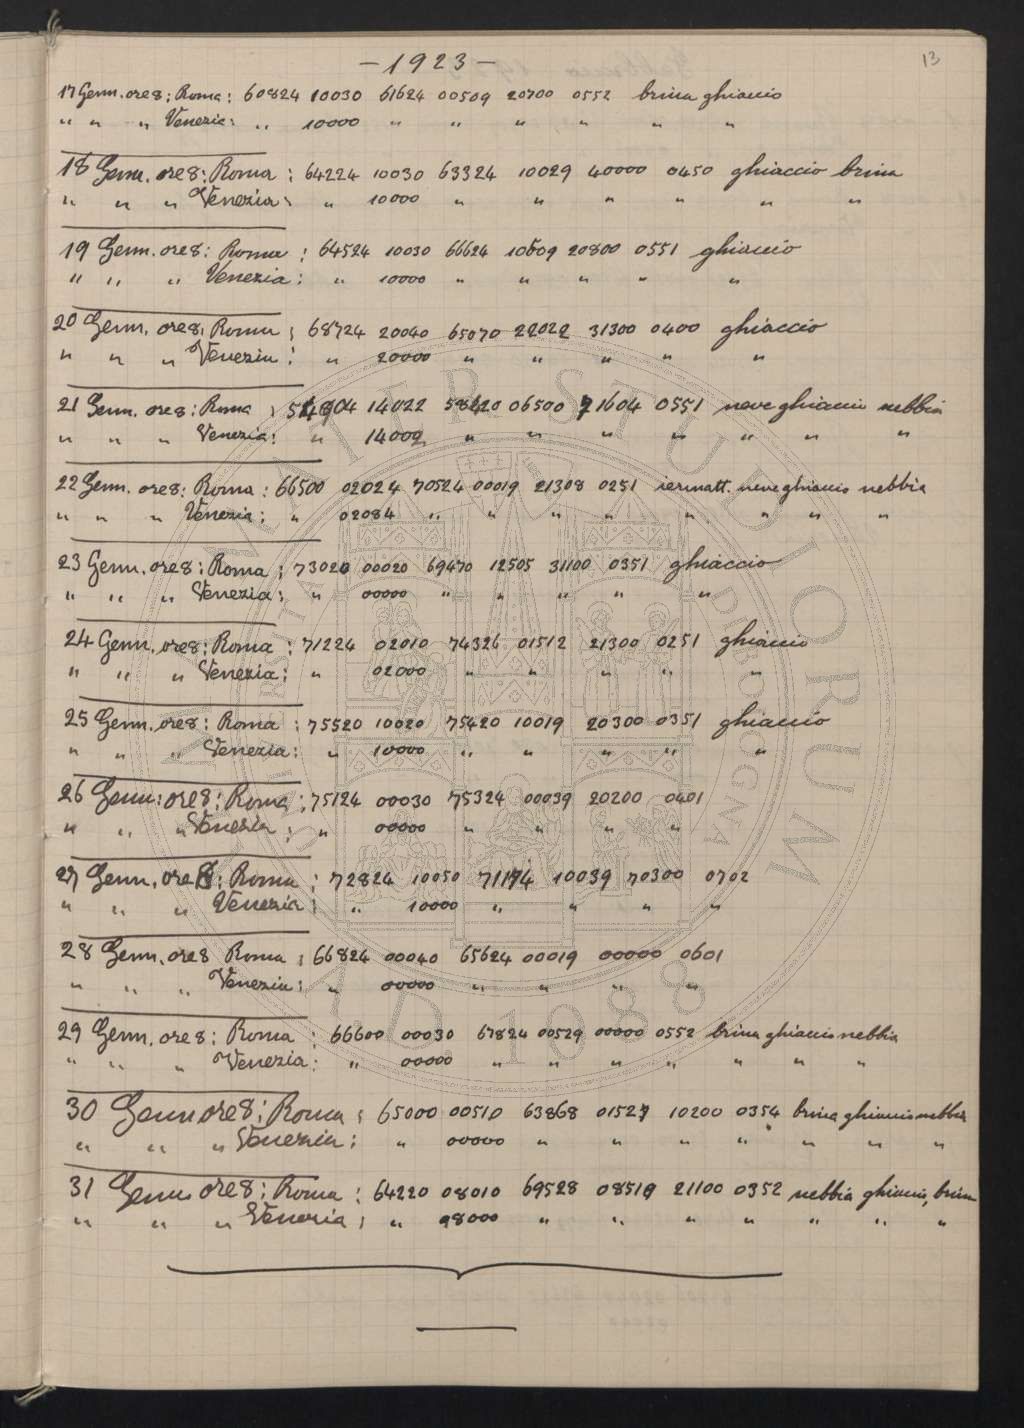 13
- 1923 -
17 Genn. ore 8: Roma: 60824 10030 61624 00509 20700 0552 brina ghiaccio
" " " Venezia: " 10000 " " " " " "
18 Genn. ore 8: Roma: 64224 10030 63324 10029 40000 0450 ghiaccio brina
" " " Venezia: " 10000 " " " " " "
19 Genn. ore 8: Roma: 64524 10030 66624 10509 20800 0551 ghiaccio
" " " Venezia: " 10000 " " " " "
20 Genn. ore 8: Roma: 68724 20040 65070 22022 31300 0400 ghiaccio
" " " Venezia: " 20000 " " " " "
21 Genn. ore 8: Roma: 14022 06500 71604 0551 neve ghiaccio nebbia
" " " Venezia: " 14002 " " " " " " "
22 Genn. ore 8: Roma: 66500 02024 70524 00019 21308 0251 neve ghiaccio nebbia
" " " Venezia: " 02084 " " " " " " " "
23 Genn. ore 8: Roma: 73020 00020 69470 12505 31100 0351 ghiaccio
" " " Venezia: " 00000 " " " " "
24 Genn. ore 8: Roma: 71224 02010 74326 01512 21300 0251 ghiaccio
" " " Venezia: " 02000 " " " " "
25 Genn. ore 8: Roma: 75520 10020 75420 10019 20300 0351 ghiaccio
" " " Venezia: " 10000 " " " " "
26 Genn: ore 8: Roma: 75124 00030 75324 00039 20200 0401
" " " Venezia: " 00000 " " " "
27 Genn. ore 8: Roma: 72824 10050 71174 10039 70300 0702
" " " Venezia: " 10000 " " " "
28 Genn. ore 8 Roma: 66824 00040 65624 00019 00000 0601
" " " Venezia: " 00000 " " " "
29 Genn. ore 8: Roma: 66600 00030 67824 00529 00000 0552 brina ghiaccio nebbia
" " " Venezia: " 00000 " " " " " " "
30 Genn ore 8: Roma: 65000 00510 63868 01527 10200 0354 brina ghiaccio nebbia
" " " Venezia: " 00000 " " " " " " "
31 Genn. ore 8: Roma: 64220 08010 69528 08519 21100 0352 nebbia ghiaccio, brina
" " " Venezia: " 08000 " " " " " " "
ALMA MATER STUDIORUM
A.D. 1088